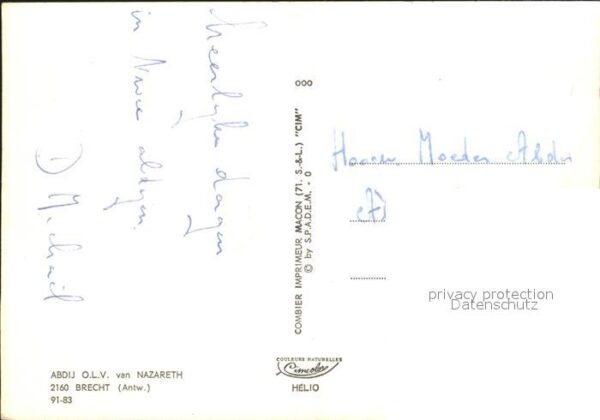 Heerlijke dagen
in
) Michaël
ooo
COMBIER IMPRIMEUR MACON (71. S.-&-L.) "CIM"
© by S.P.A.D.E.M. - 0
Moeder
privacy protection
Datenschutz
COULEURS NATURELLES
Cimcolor
HÉLIO
ABDIJ O.L.V. van NAZARETH
2160 BRECHT (Antw.)
91-83